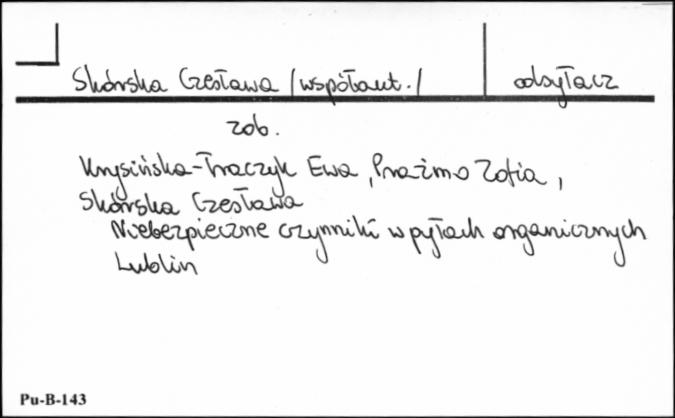 Skórska Czesława /współaut./ odsyłacz
zob.
Krysińska-Traczyk Ewa, Prażmo Zofia,
Skórska Czesława
Niebezpieczne czynniki w pyłach organicznych
Lublin
Pu-B-143